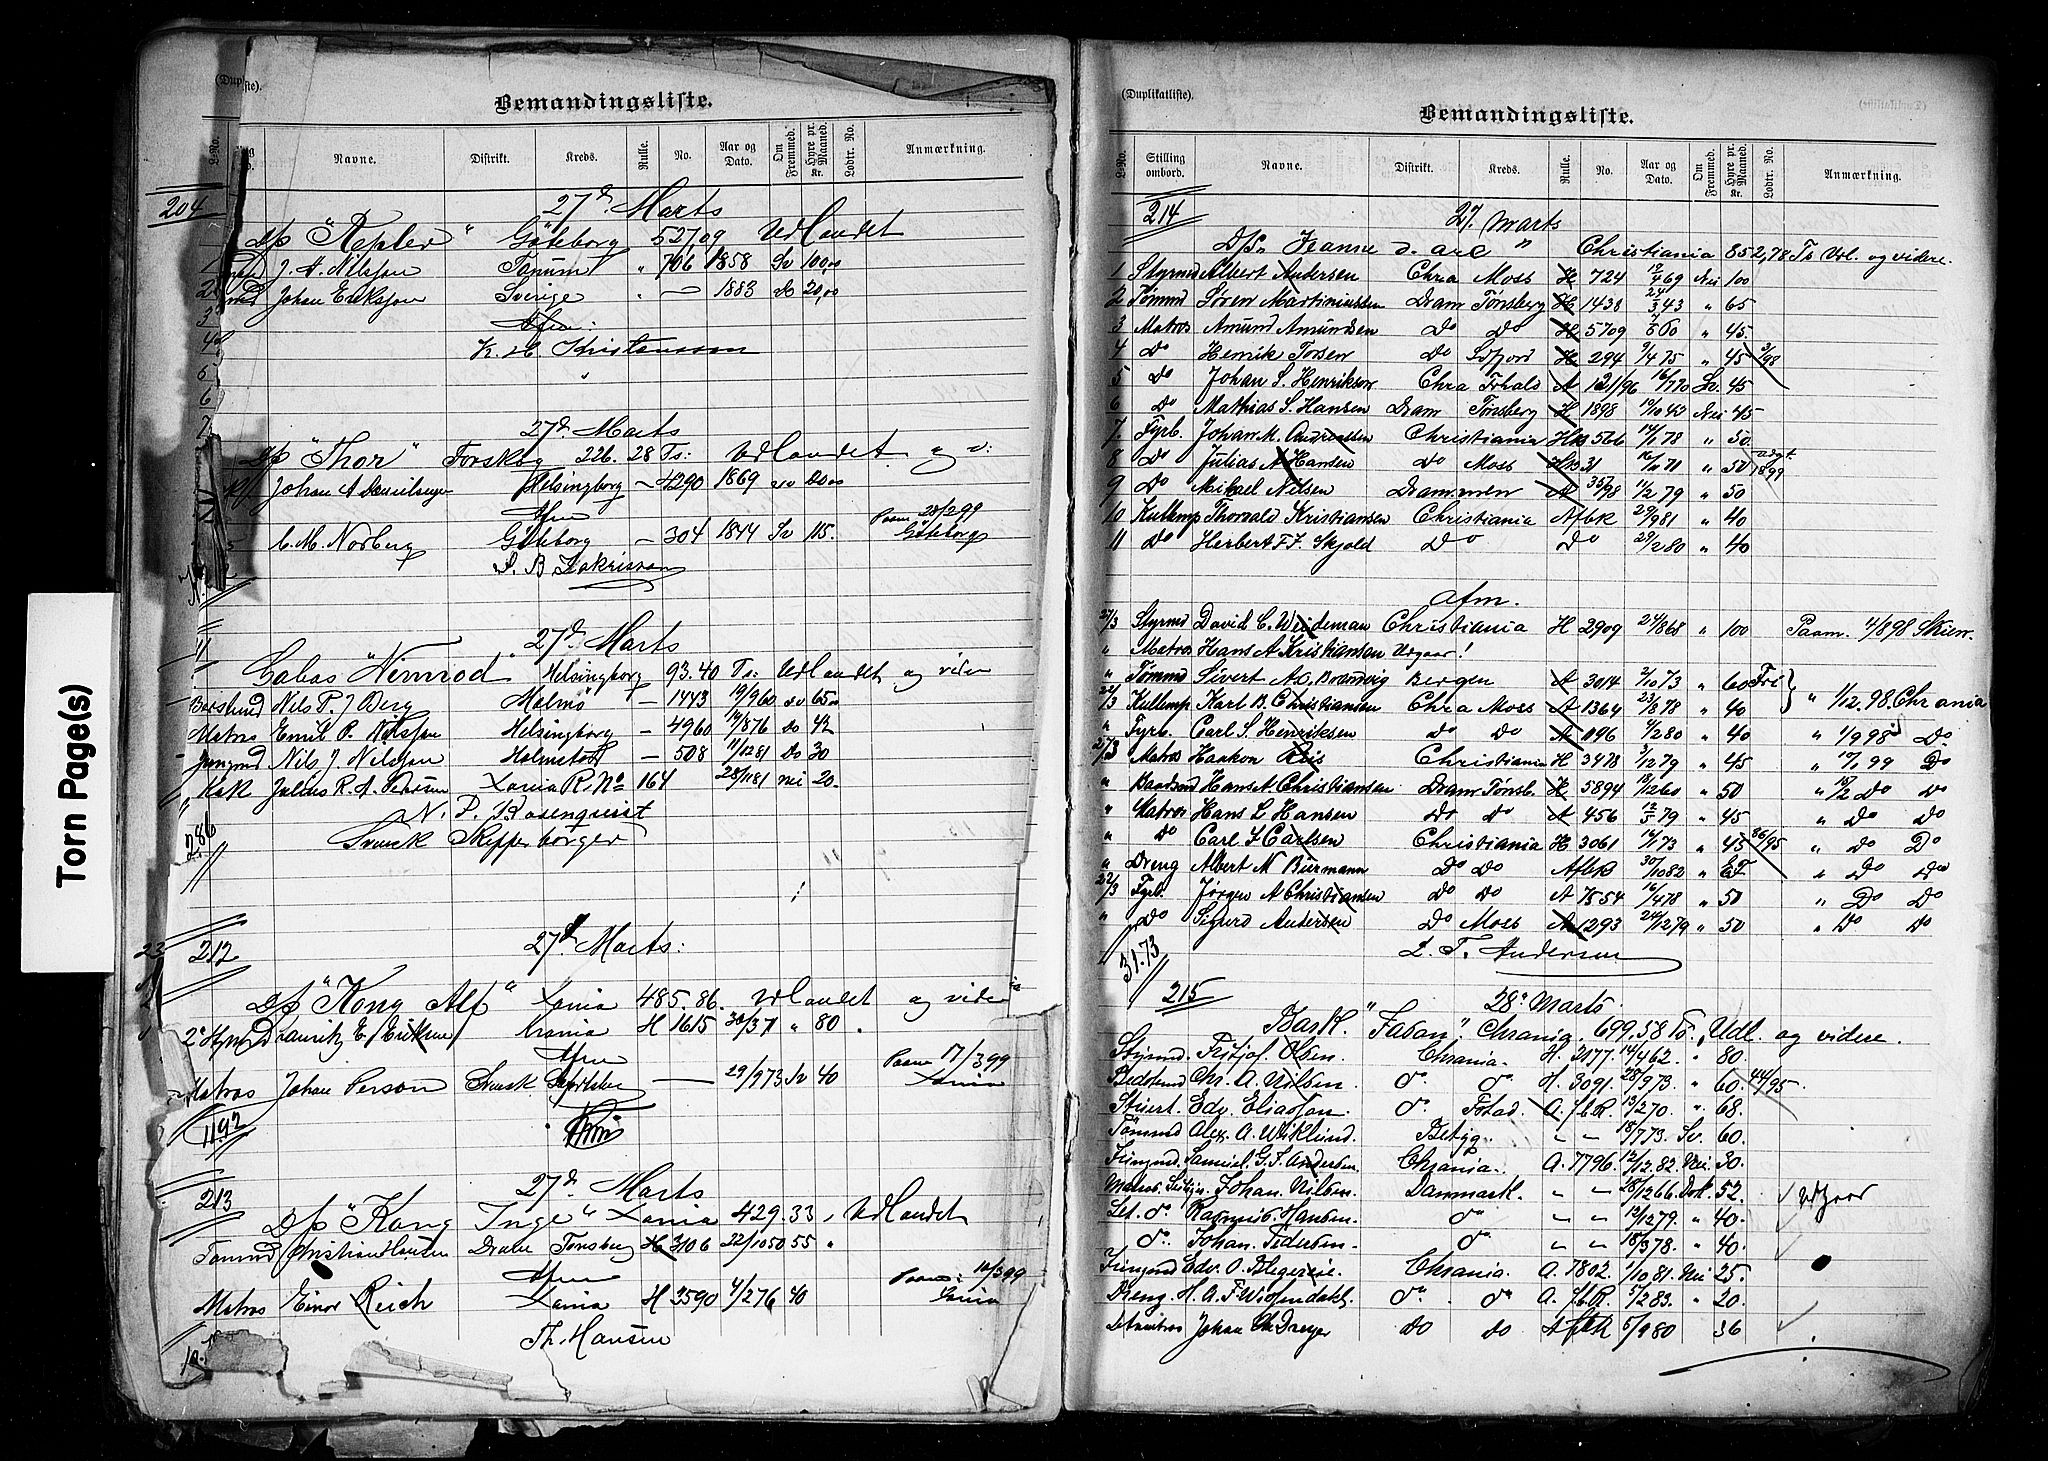 Torn Page(s)
(Duplikatliste).
Bemandingsliste.
L.-No. Navne. Distrikt. Kreds. Rulle. No. Aar og Dato. Om Fremmed. Hyre pr. Maaned. Kr. Lodtr. No. Anmærkning.
204 27d. Marts
D/s "Kepler" Göteborg 527,09 Udlandet
J. A. Nilsson Tanum " 706 1858 Sv 100,00
Johan Eriksson Sverige " — 1883 Do 20,00
Afm:
K. H. Kristensson
27d. Marts
D/s "Thor" Torskog 226.28 Ts: Udlandet og v:
Johan A Danielsen Helsingborg — 4290 1869
Afm
C. M. Norberg Göteborg — 304 1844 Sv 115. Paam 28/2 99 Göteborg
S. B Zakrisson
27d. Marts
Galeas "Nimrod" Helsingborg 93.40 Ts. Udlandet og videre
Bestmd Nils P. J Berg Malmö — 1443 19/9 60 sv 65
Matros Emil P. Nilsson Helsingborg — 4960 14/8 76 Do 42
Jungmd Nils J. Nilsson Halmstad — 508 11/12 81 Do 30
Kok Julius R. A. Petersen Xania R. No 164 28/1 81 nei 20.
N. P. Rosenquist
Svensk Skeppsborger
286
212 27d Marts:
D/s "Kong Alf" Xania 485.86. Udlandet og videre
2 Styrmd Erichsen Krania H 1615 30/3 71 " 80
Afm
Matros Johan Person Svensk — 29/9 73 Sv 40 Paam 17/3 99 Xania
1192
213 27d. Marts
D/s "Kong Inge" Xania 429.33, Udlandet
Tømmd Christian Hansen Dram Tønsberg H 3106 22/10 50 55 "
Afm
Matros Einar Reich Xania H 3590 4/2 76 40 Paam: 10/3 99 Xania
Th. Hansen
(Duplikatliste).
Bemandingsliste.
L.-No. Stilling ombord. Navne. Distrikt. Kreds. Rulle. No. Aar og Dato. Om Fremmed. Hyre pr. Maaned. Kr. Lodtr. No. Anmærkning.
214 27. Marts
D/s. Jeanne d. arc " Christiania 852,78 Ts Udl. og videre.
1 Styrmd Albert Andersen Chra Moss H 724 12/4 69 Nei 100
2 Tømmd Søren Martiniussen Dram Tønsberg H 1438 24/3 43 " 65
3 Matros Amund Amundsen Do Do H 5709 7/6 60 " 45.
4 Do Henrik Torsen Do Lofjord H 294 9/4 75 " 45 3/98
5 Do Johan S. Henrikson Chra Frhald A 121/96 16/7 70 Sv. 45
6 Do Mathias S. Hansen Dram Tønsberg H 1898 19/10 43 Nei 45
7. Fyrb. Johan M. Andreassen Christiania 566 14/1 78 " 50
8 Do Julius A Hansen Do Moss 31 16/11 71 " 50 udgt. 1899
9 Do Mikael Nilsen Drammen A 35/98 11/2 79 " 50
10 Kullemp Thorvald Kristiansen Christiania Afbk 29/9 81 " 40
11 Do Herbert F. F. Skjold Do Do 29/2 80 " 40
Afm.
27/3 Styrmd David C. Weideman Christiania H 2909 24/8 68 " 100 Paam. 11/8 98 Skien.
" Matros Hans A Kristiansen Udgaar!
" Tømmd Sivert Brandvig Bergen A 3014 2/10 73 " 60 Fri
24/3 Kullemp Karl B. Christiansen Chra Moss A 1364 23/8 78 " 40 " 1/12. 98. Chrania
" Fyrb. Carl S. Henriksen Do Do A 1096 4/2 80 " 40 " 1/9 98 Do
27/3 Matros Haakon Riis Christiania H 3478 3/12 79 " 45 " 17/1 99 Do
" Baadsmd Hans A. Christiansen Dram Tønsb. H 5894 18/12 60 " 50 " 15/2 Do Do
" Matros Hans L Hansen Do Do A 456 12/5 79 " 45 " Do Do
" Do Carl S Carlsen Christiania H 3061 14/1 73 " 45 86/95 " Do Do
" Dreng Albert M Burmann Do Do Afbk 30/10 82 " " Do Do
22/3 Fyrb. Jørgen A Christiansen Do Do A 7554 16/4 78 " 50 " Do Do
" Do Sigurd Andersen Do Moss A 1293 24/12 79 " 50 " Do Do
31.73 L. T. Andersen
215 28. Marts
Bark. "Favan", Chrania. 699.58 Ts. Udl. og videre.
Styrmd. Fritjof Olsen. Chrania. H. 2177. 14/4 62. " 80.
Bedstmd Chr. A. Nilsen. do. do H. 3091. 28/9 73. " 60. 44/95.
Stuert. Edv. Eliassen. do. A. fb.R. 13/2 70. " 68.
Tømmd Alex. A. Wiklund. " " 18/7 73. Sv. 60.
Jungmd. Samuel. G. F. Andersen. Chrania. A. 7796. 12/12 82. Nei 30.
Matros. Johan. Nilsen. Danmark. " " 28/12 66. Dsk. 52. udgaar
Let. do. Rasmus. Hansen. do " " 12/12 79. " 40.
do. Johan. Pedersen. do " " 18/3 78. " 40.
Jungmd Edv. O. Chrania. A. 7802. 1/10 81. Nei 25.
Dreng. H. A. F. do do A. fb.R. 5/2 83. " 20.
Letmatros Johan Chr Dreyer do do Afbk 5/9 80 36